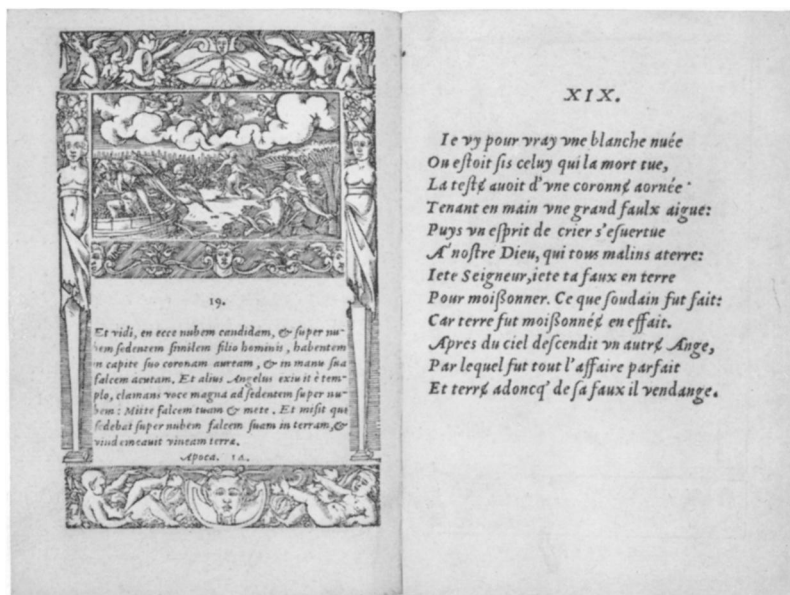 19.
Et vidi, en ecce nubem candidam, & super nu-
bem sedentem similem filio hominis, habentem
in capite suo coronam auream, & in manu sua
falcem acutam. Et alius Angelus exiuit è tem-
plo, clamans voce magna ad sedentem super nu-
bem: Mitte falcem tuam & mete. Et misit qui
sedebat super nubem falcem suam in terram, &
vindemeauit vineam terræ.
Apoca. 14.
XIX.
Ie vy pour vray vne blanche nuée
Ou estoit sis celuy qui la mort tue,
La testɇ auoit d'vne coronnɇ aornée
Tenant en main vne grand faulx aigue:
Puys vn esprit de crier s'esuertue
A' nostre Dieu, qui tous malins aterre:
Iete Seigneur, iete ta faux en terre
Pour moißonner. Ce que soudain fut fait:
Car terre fut moißonnéɇ en effait.
Apres du ciel descendit vn autrɇ Ange,
Par lequel fut tout l'affaire parfait
Et terrɇ adoncq' de sa faux il vendange.